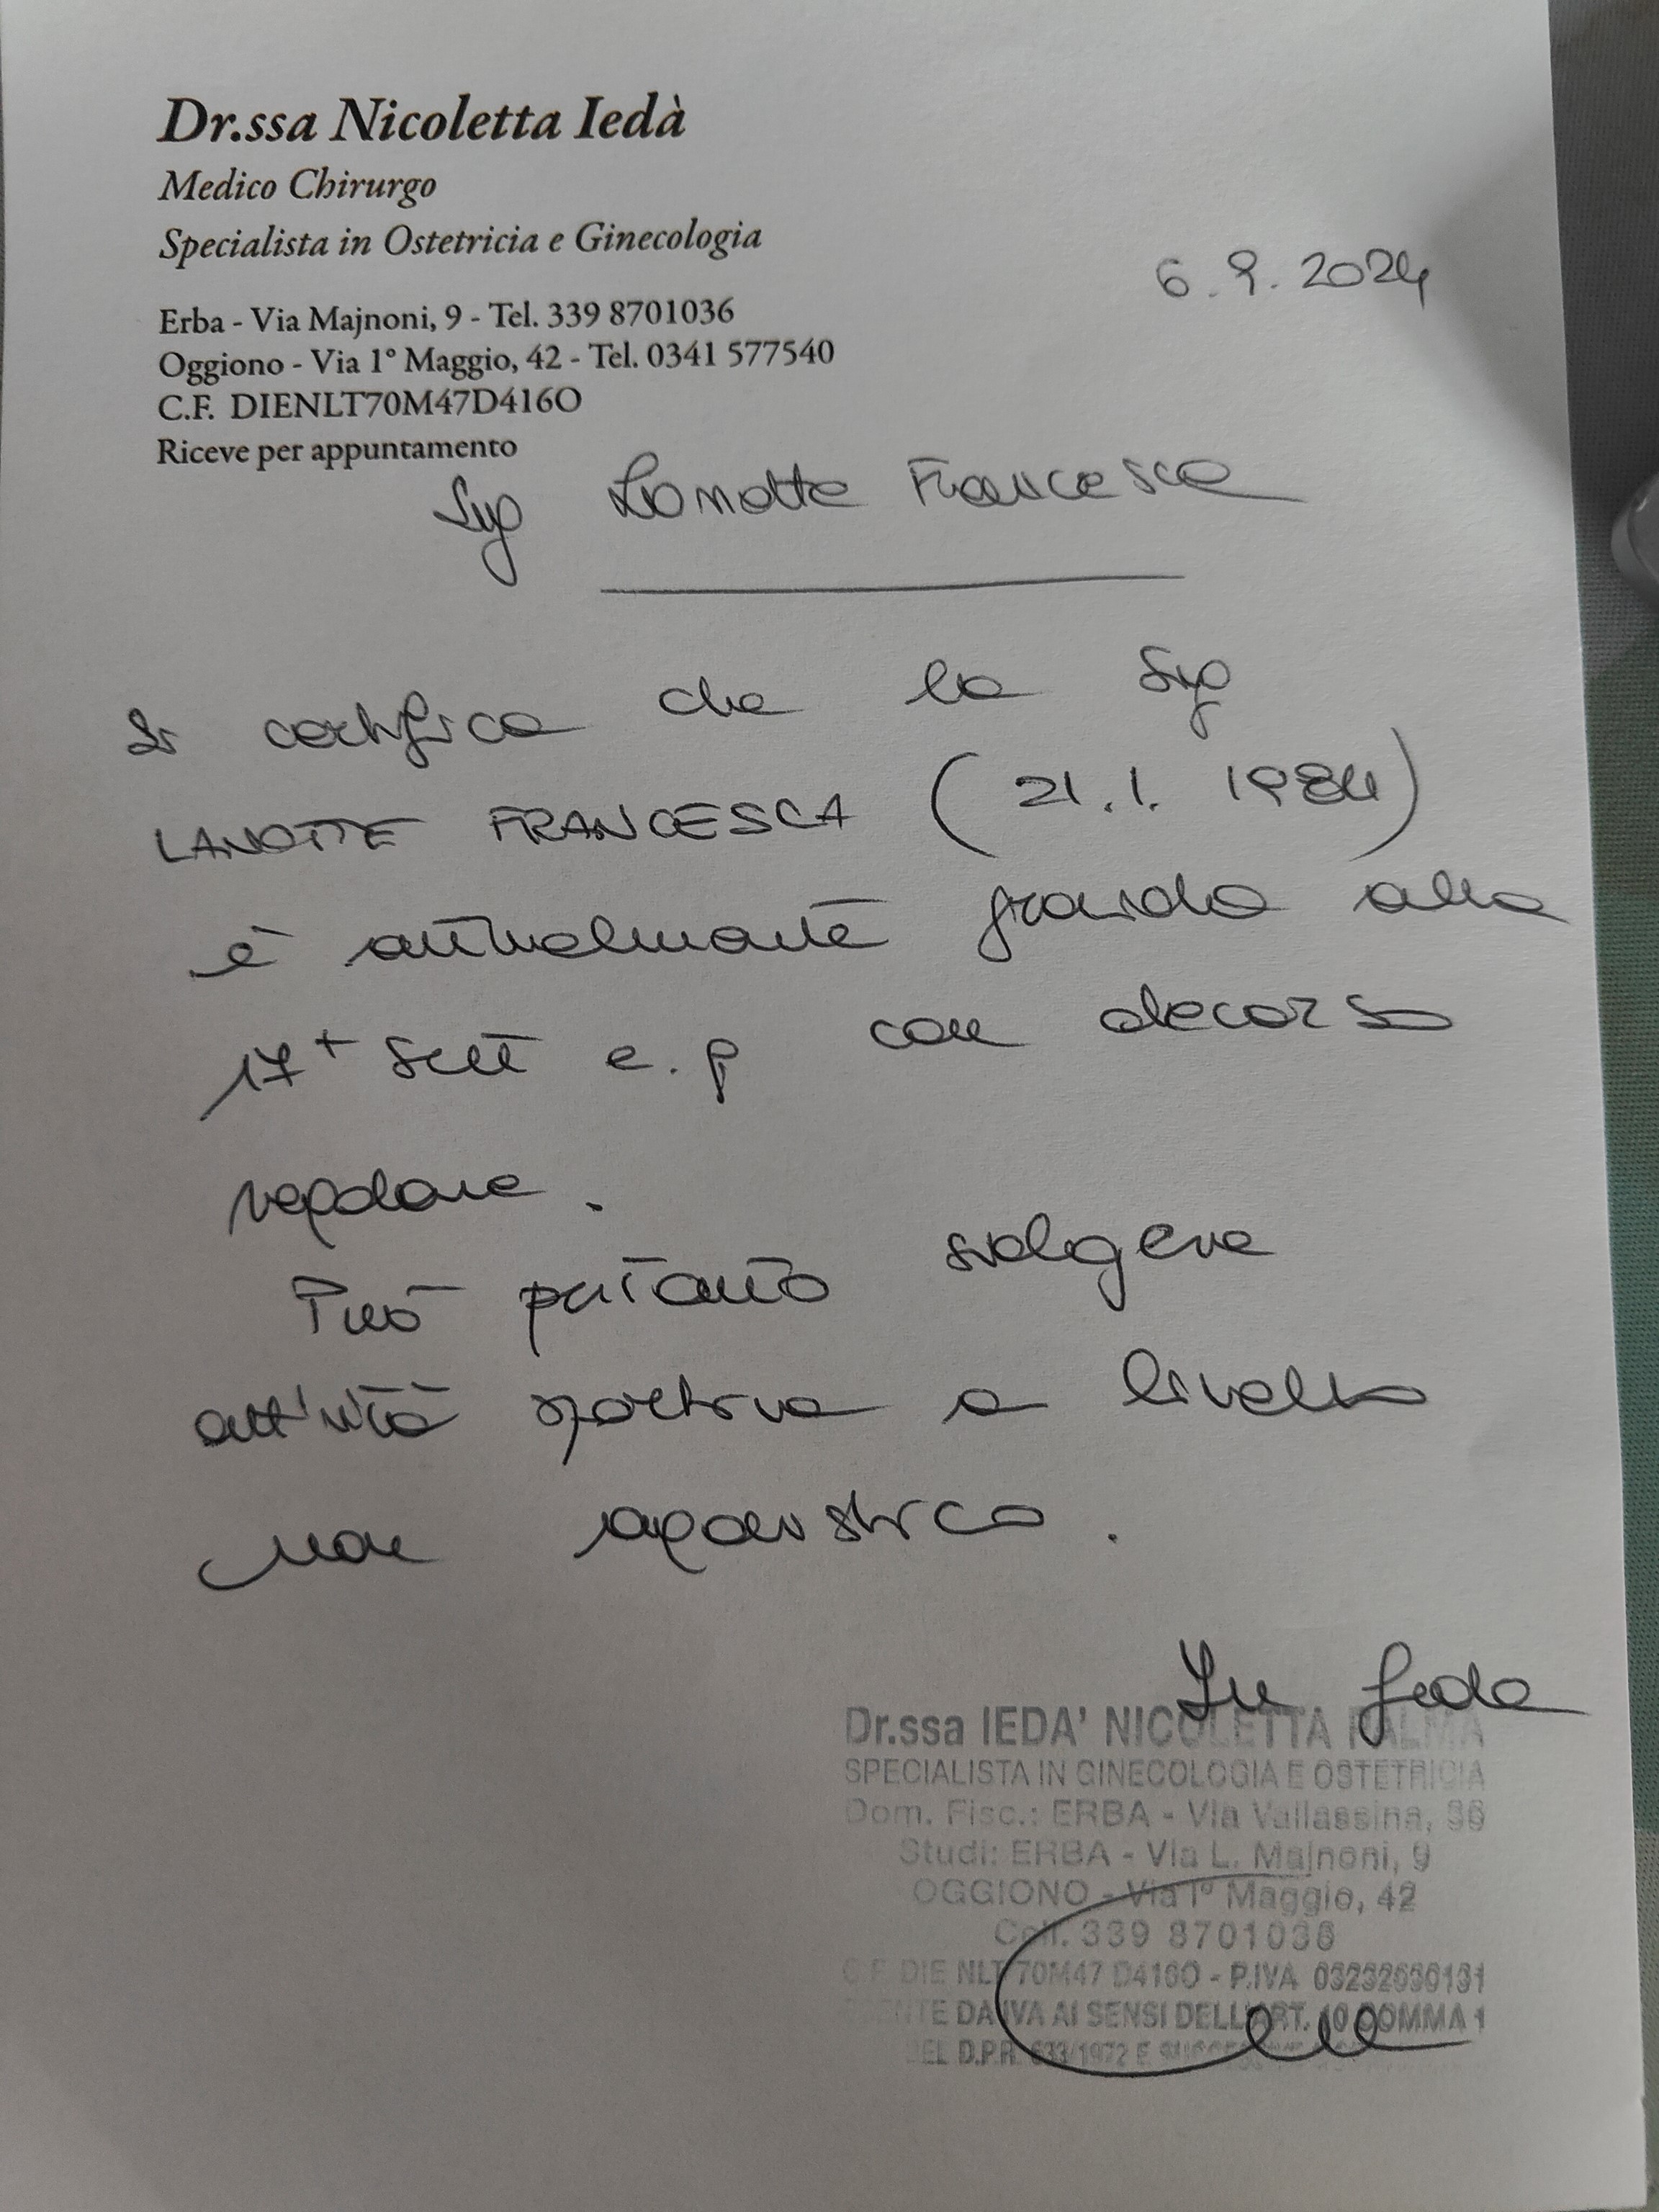 Dr.ssa Nicoletta Iedà
Medico Chirurgo
Specialista in Ostetricia e Ginecologia
6.9.2024
Erba - Via Majnoni, 9 - Tel. 339 8701036
Oggiono - Via 1° Maggio, 42 - Tel. 0341 577540
C.F. DIENLT70M47D416O
Riceve per appuntamento
Sig Lanotte Francesca
Si certifica che la Sig
LANOTTE FRANCESCA (21.1.1984)
è attualmente gravida alla
17+ sett e.g con decorso
regolare.
Può pertanto svolgere
attività sportiva a livello
non agonistico.
Ieda
Dr.ssa IEDA' NICOLETTA PALMA
SPECIALISTA IN GINECOLOGIA E OSTETRICIA
Dom. Fisc.: ERBA - Via Vallassina,
Studi: ERBA - Via L. Majnoni, 9
OGGIONO - Via I° Maggio, 42
Cell. 339 8701036
C.F. DIE NLT 70M47 D416O - P.IVA
DA IVA AI SENSI DELL'ART. 10 COMMA 1
DEL D.P.R. 633/1972 E